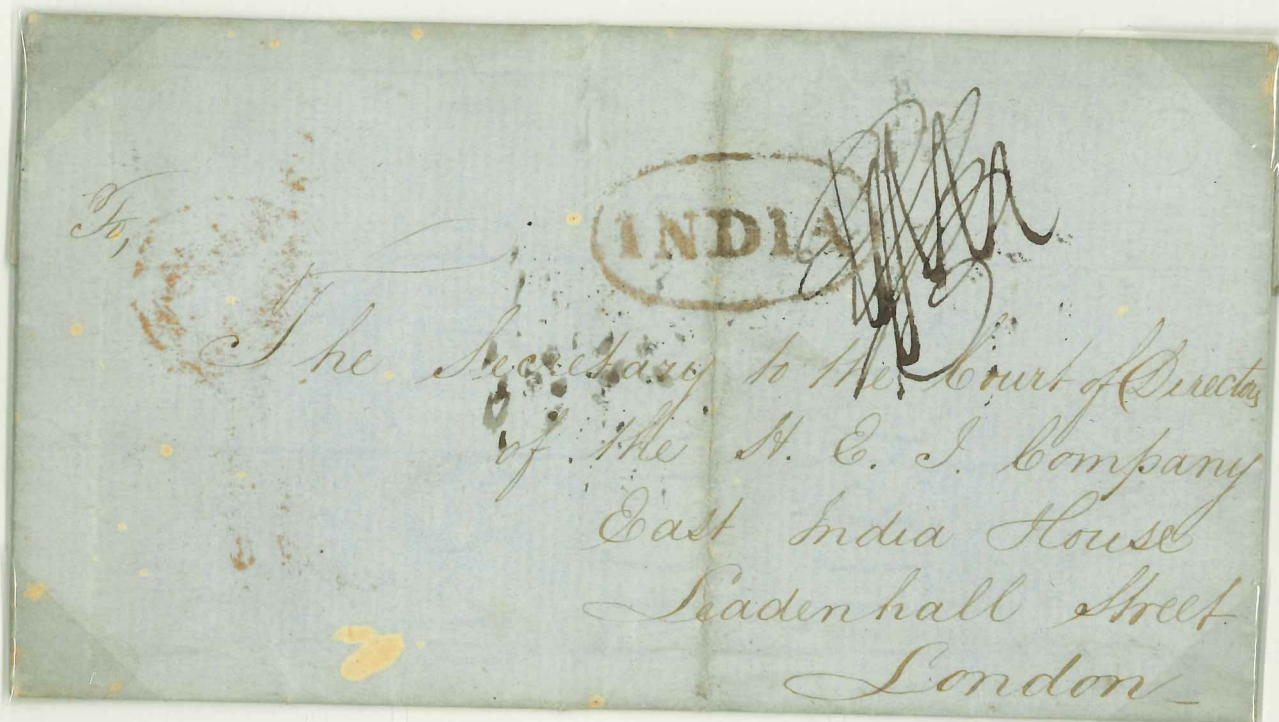 To,
INDIA
The Secretary to the Court of Directors
of the H. E. I. Company
East India House
Leadenhall Street
London